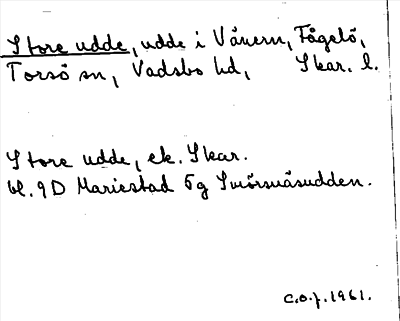 Store udde, udde i Vänern, Fågelö,
Torsö sn, Vadsbo hd, Skar. l.
Store udde, ek. Skar.
bl. 9D Mariestad 5g Smörnäsudden.
C.O.J. 1961.